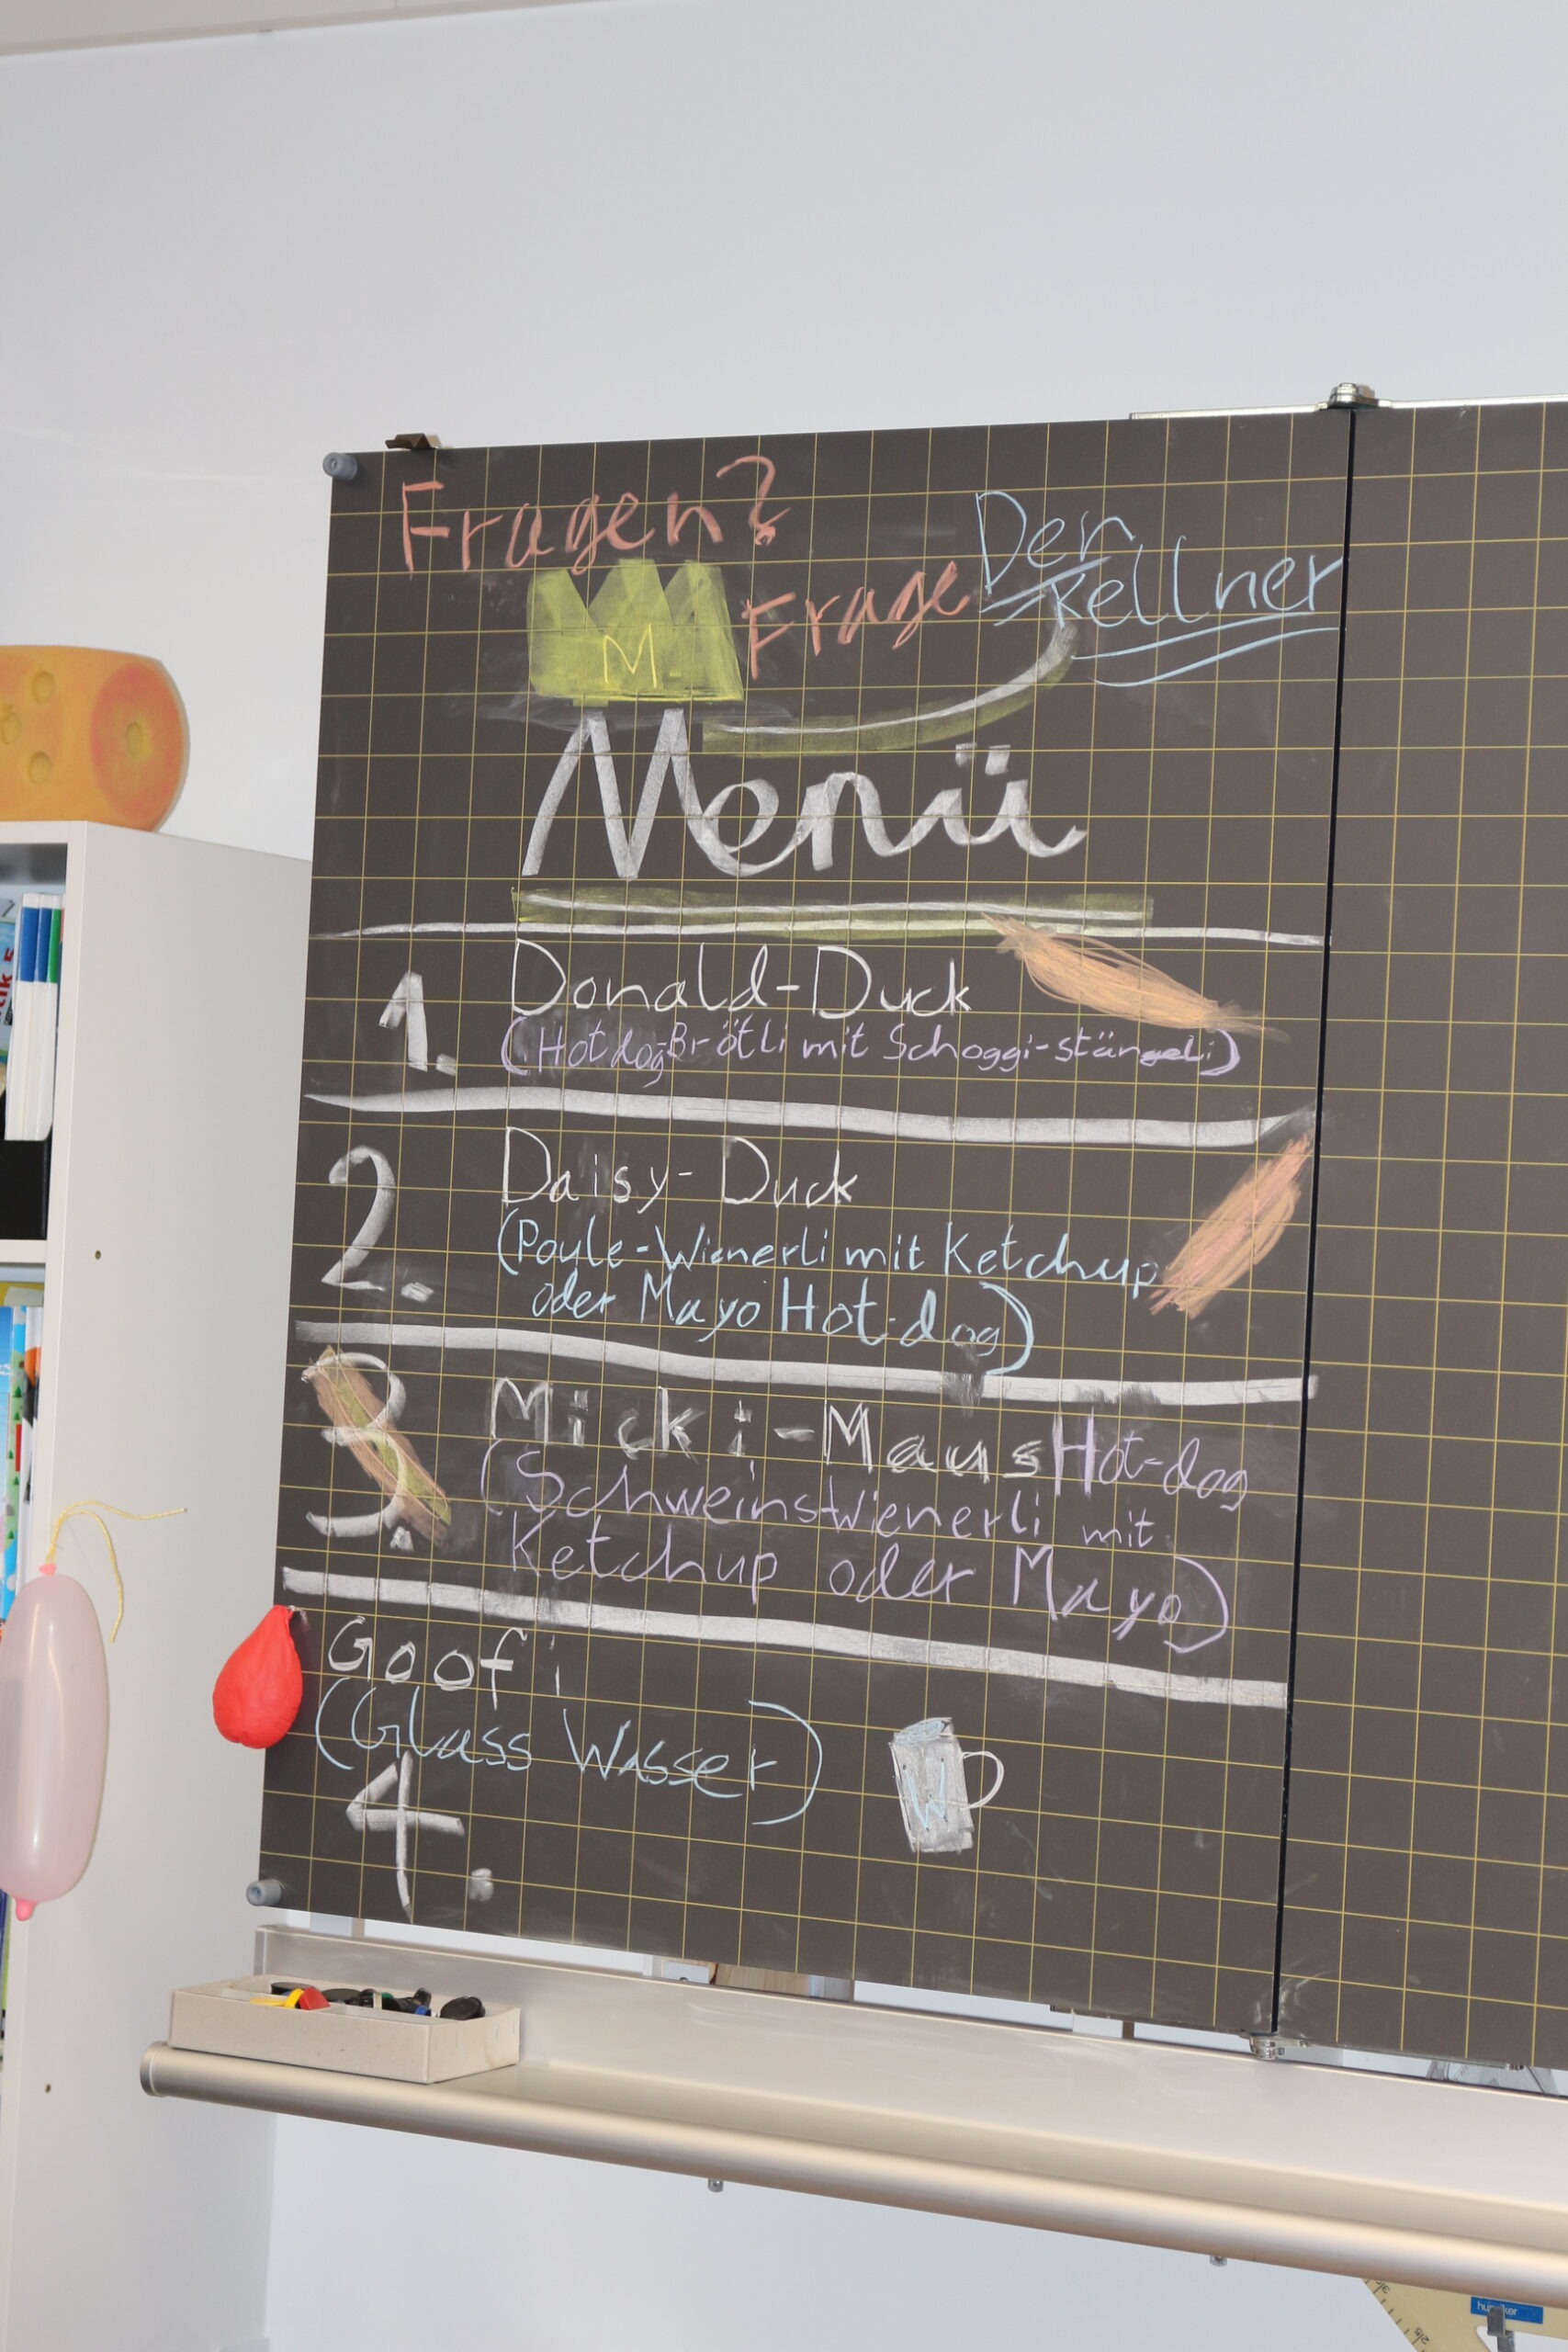 Fragen?
Frage Den
Kellner
M
Menü
1. Donald-Duck
(Hotdog-Brötli mit Schoggi-stängeli)
2. Daisy-Duck
(Poule-Wienerli mit Ketchup
oder Mayo Hot-dog)
3. Micki-Maus Hot-dog
(Schweinswienerli mit
Ketchup oder Mayo)
Goofi
(Glass Wasser)
W
4.